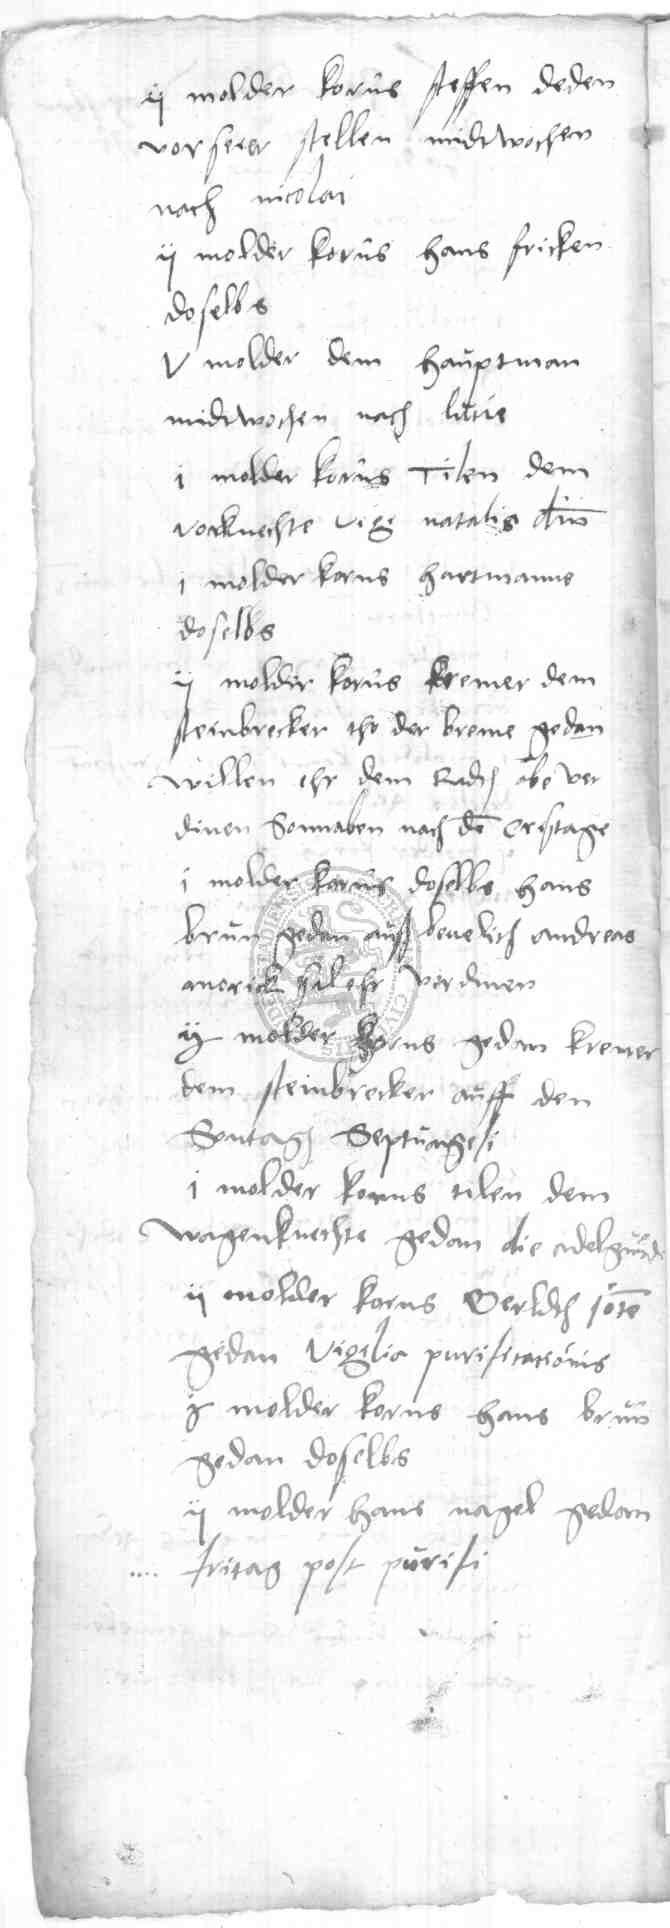 ij molder korns steffen deden
vor seer stellen midtwochen
nach nicolai
ij molder korns hans fricken
doselbs
V molder dem hauptman
midtwochen nach lucie
j molder korns Tilen dem
vorknechte vigi natalis dni
j molder korns hartmanns
doselbs
ij molder korns kremer dem
steinbrecker tho der breme gedan
willen ehr dem Radth obe ver
dinen Sonnaben nach de Cristage
j molder korns doselbs hans
brun gedan auff bevelich andreas
ehr vordinen
ij molder korns gedan kremer
dem steinbrecker auff den
Sontag Septuagesi
j molder korns tilen dem
wagenknechte gedan die adelgunde
ij molder korns
gedan Vigilia purificationis
j molder korns hans brun
gedan doselbs
ij molder hans nagel gedan
fritag post purifi